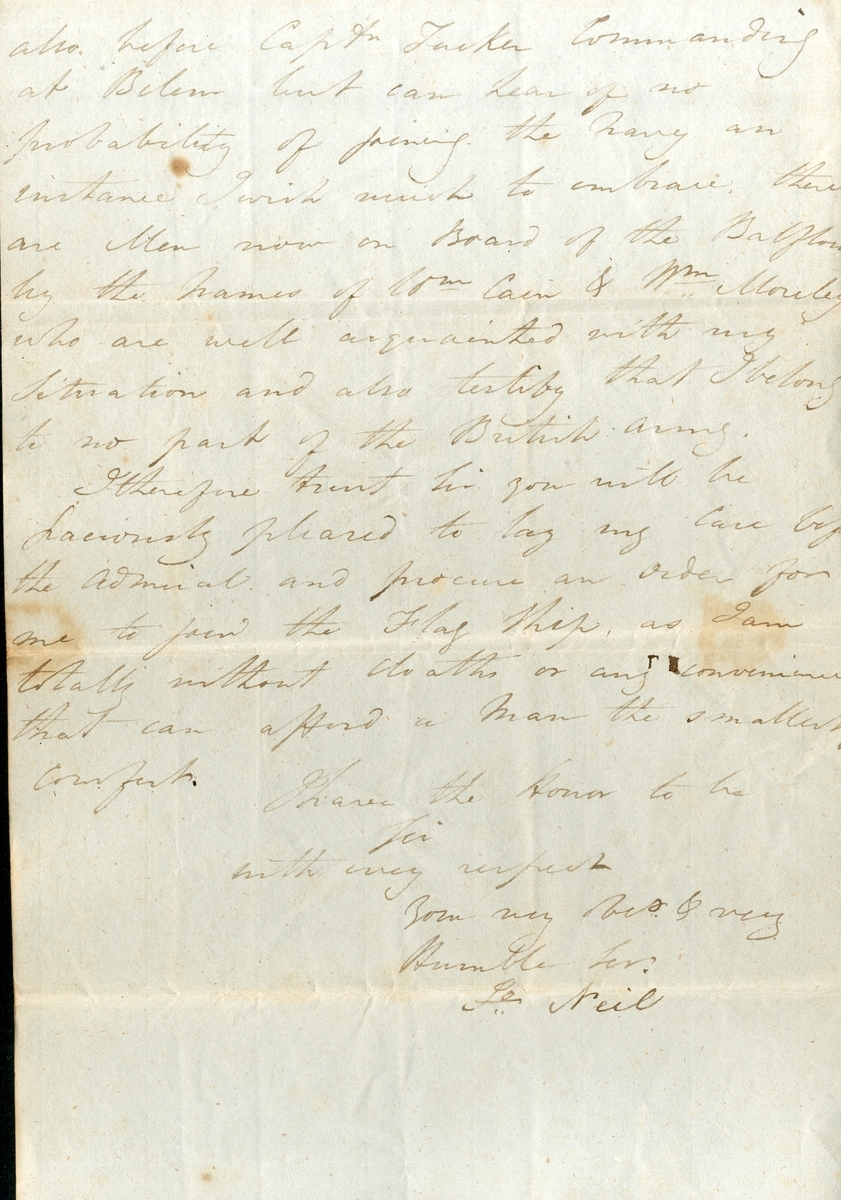 also before Captn Tucker Commanding
at Belem but can hear of no
probability of joining the navy an
instance I wish much to embrace. there
are Men now on Board of the Balfleu
by the names of Wm Cain & Wm Moreley
who are well acquainted with my
Situation and also testify that I belong
to no part of the British army.
I therefore trust Sir you will be
graciously pleased to lay my Case bef
the Admiral and procure an order for
me to join the Flag Ship, as I am
totally without cloaths or any convenience
that can afford a Man the smallest
comfort.
I have the Honor to be
Sir
with every respect
Your very obet & very
Humble Ser.
Neil